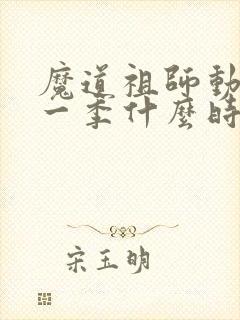 魔道祖師動
一季什麼時
宋玉明